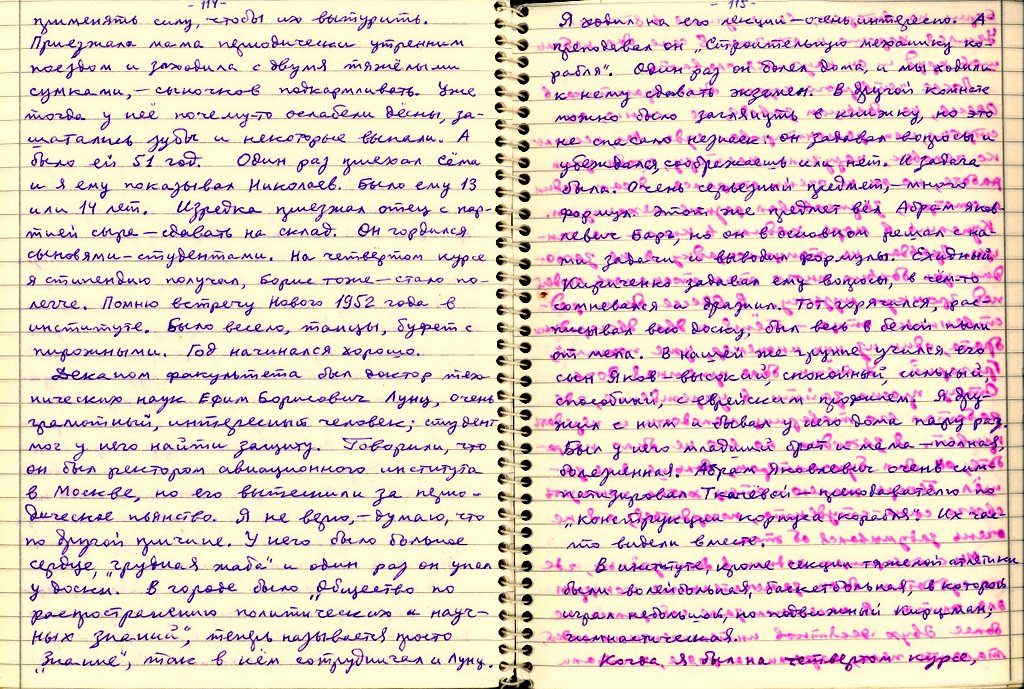 - 114 -
применять силу, чтобы их вытурить.
Приезжала мама периодически утренним
поездом и заходила с двумя тяжёлыми
сумками, – сыночков подкармливать. Уже
тогда у неё почему-то ослабели дёсны, за-
шатались зубы и некоторые выпали. А
было ей 51 год. Один раз приехал Сёма
и я ему показывал Николаев. Было ему 13
или 14 лет. Изредка приезжал отец с пар-
тией сыра – сдавать на склад. Он гордился
сыновями-студентами. На четвертом курсе
я стипендию получал, Борис тоже – стало по-
легче. Помню встречу Нового 1952 года в
институте. Было весело, танцы, буфет с
пирожными. Год начинался хорошо.
Деканом факультета был доктор тех-
нических наук Ефим Борисович Лунц, очень
грамотный, интересный человек; студент
мог у него найти защиту. Говорили, что
он был ректором авиационного института
в Москве, но его вытеснили за перио-
дическое пьянство. Я не верю, – думаю, что
по другой причине. У него было больное
сердце, "грудная жаба" и один раз он упал
у доски. В городе было „Общество по
распространению политических и науч-
ных знаний", теперь называется просто
„Знание", так в нём сотрудничал и Лунц.
- 115 -
Я ходил на его лекции – очень интересно. А
преподавал он „Строительную механику ко-
рабля". Один раз он болел дома, и мы ходили
к нему сдавать экзамен. В другой комнате
можно было заглянуть в книжку, но это
не спасало незнаек: он задавал вопросы и
убеждался соображаешь или нет. И задача
была. Очень серьезный предмет, – много
формул. Этот же предмет вёл Абрам Яков-
левич Барг, но он в основном решал с на-
ми задачи и выводил формулы. Ехидный
Кириченко задавал ему вопросы, в чём-то
сомневался и дразнил. Тот горячился, рас-
писывал всю доску, был весь в белой пыли
от мела. В нашей же группе учился его
сын Яков – высокий, спокойный, сильный,
способный, с еврейским профилем. Я дру-
жил с ним и бывал у него дома пару раз.
Был у него младший брат и мама – полная,
болезненная. Абрам Яковлевич очень сим-
патизировал Ткачёвой – преподавателю по
„Конструкции корпуса корабля". Их час-
то видели вместе.
В институте, кроме секции тяжелой атлетики
были волейбольная, баскетбольная, в которой
играл небольшой, но подвижный Кирцман,
гимнастическая.
Когда я был на четвертом курсе,